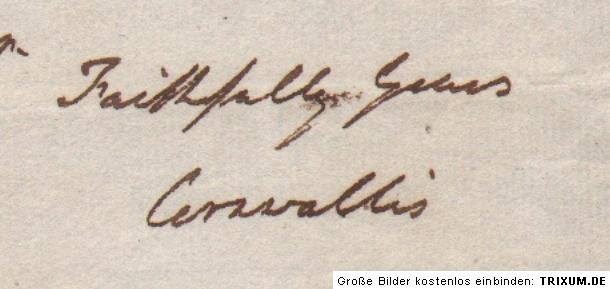 Faithfully Yours
Cornwallis
Große Bilder kostenlos einbinden: TRIXUM.DE